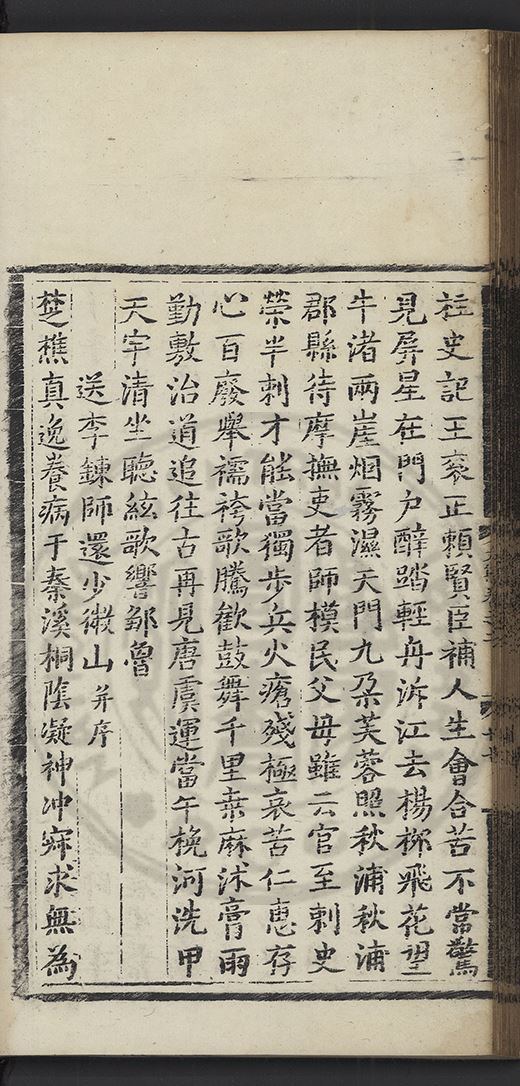 柱史記王衮正賴賢臣補人生會合苦不常驚
見屏星在門戶醉踏輕舟泝江去楊栁飛花望
牛渚兩崖烟霧濕天門九朶芙蓉照秋浦秋浦
郡縣待摩撫吏者師模民父母雖云官至刺史
榮半刺才能當獨歩兵火瘡殘極哀苦仁惠存
心百廢舉襦袴歌騰歡鼓舞千里桒麻沐膏雨
勤敷治道追往古再見唐虞運當午挽河洗甲
天宇清坐聽絃歌響鄒魯
送李鍊師還少微山并序
楚樵真逸養病于秦溪桐隂凝神冲寂求無為